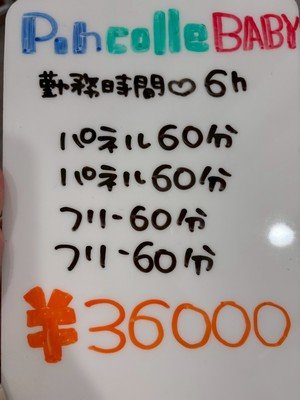 PihcolleBABY
勤務時間♡6h
パネル60分
パネル60分
フリー60分
フリー60分
¥36000